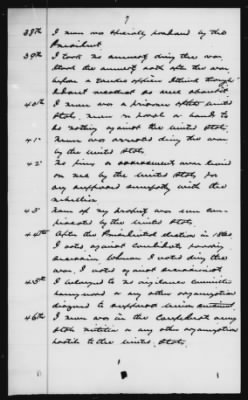 7
38th I was not specially pardoned by the
President.
39th I took no amnesty during the war.
I took the amnesty oath after the war
before a tender officer I think though
I do not recollect as sure about it.
40th I never was a prisoner of the United
States. never in bond or bound to
do nothing against the United States.
41st Never was arrested during the war
by the United States
42 No fine or assessment was levied
on me by the United States for
any supposed sympathy with the
rebellion.
43 None of my property was ever con-
fiscated by the United States
44th After the Presidential election in 1860
I voted against candidates favoring
secession whenever I voted during the
war. I voted against secessionist
45th I belonged to no vigilance committee
home guard or any other organization
designed to suppress union sentiment
46th I never was in the Confederate army
State militia or any other organization
hostile to the United States.